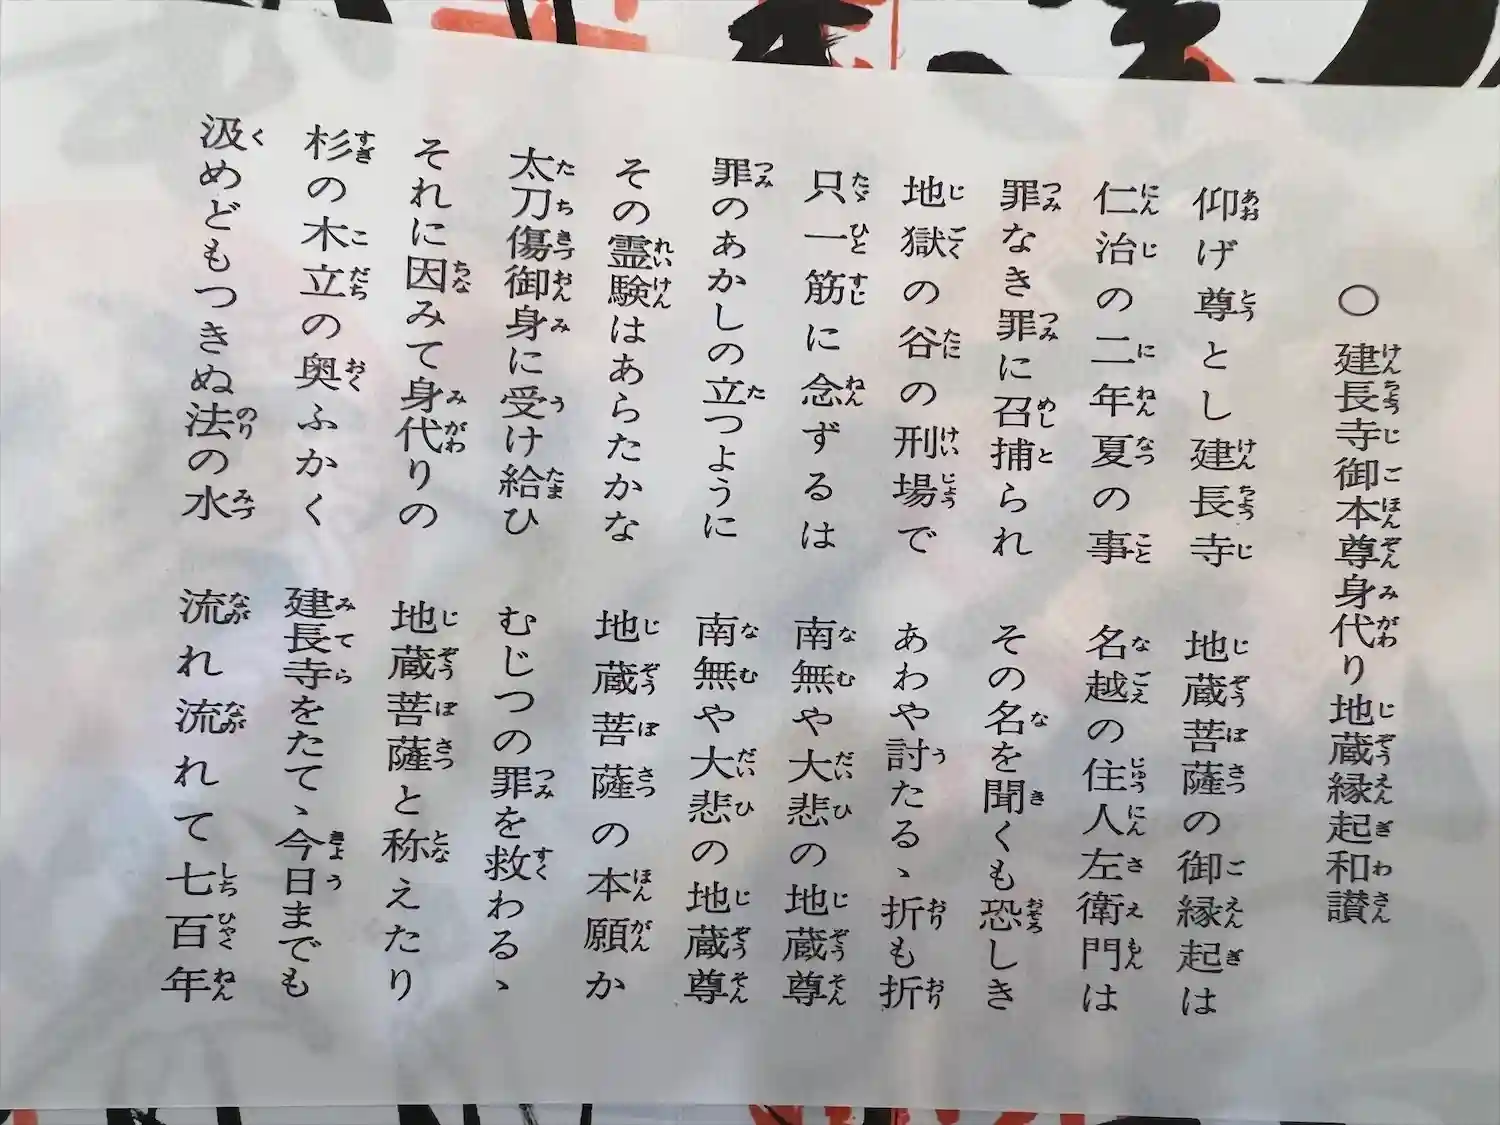 〇 建長寺御本尊身代り地蔵縁起和讃
仰げ尊とし建長寺 地蔵菩薩の御縁起は
仁治の二年夏の事 名越の住人左衛門は
罪なき罪に召捕られ その名を聞くも恐しき
地獄の谷の刑場で あわや討たる、折も折
只一筋に念ずるは 南無や大悲の地蔵尊
罪のあかしの立つように 南無や大悲の地蔵尊
その霊験はあらたかな 地蔵菩薩の本願か
太刀傷御身に受け給ひ むじつの罪を救わる、
それに因みて身代りの 地蔵菩薩と称えたり
杉の木立の奥ふかく 建長寺をたて、今日までも
汲めどもつきぬ法の水 流れ流れて七百年